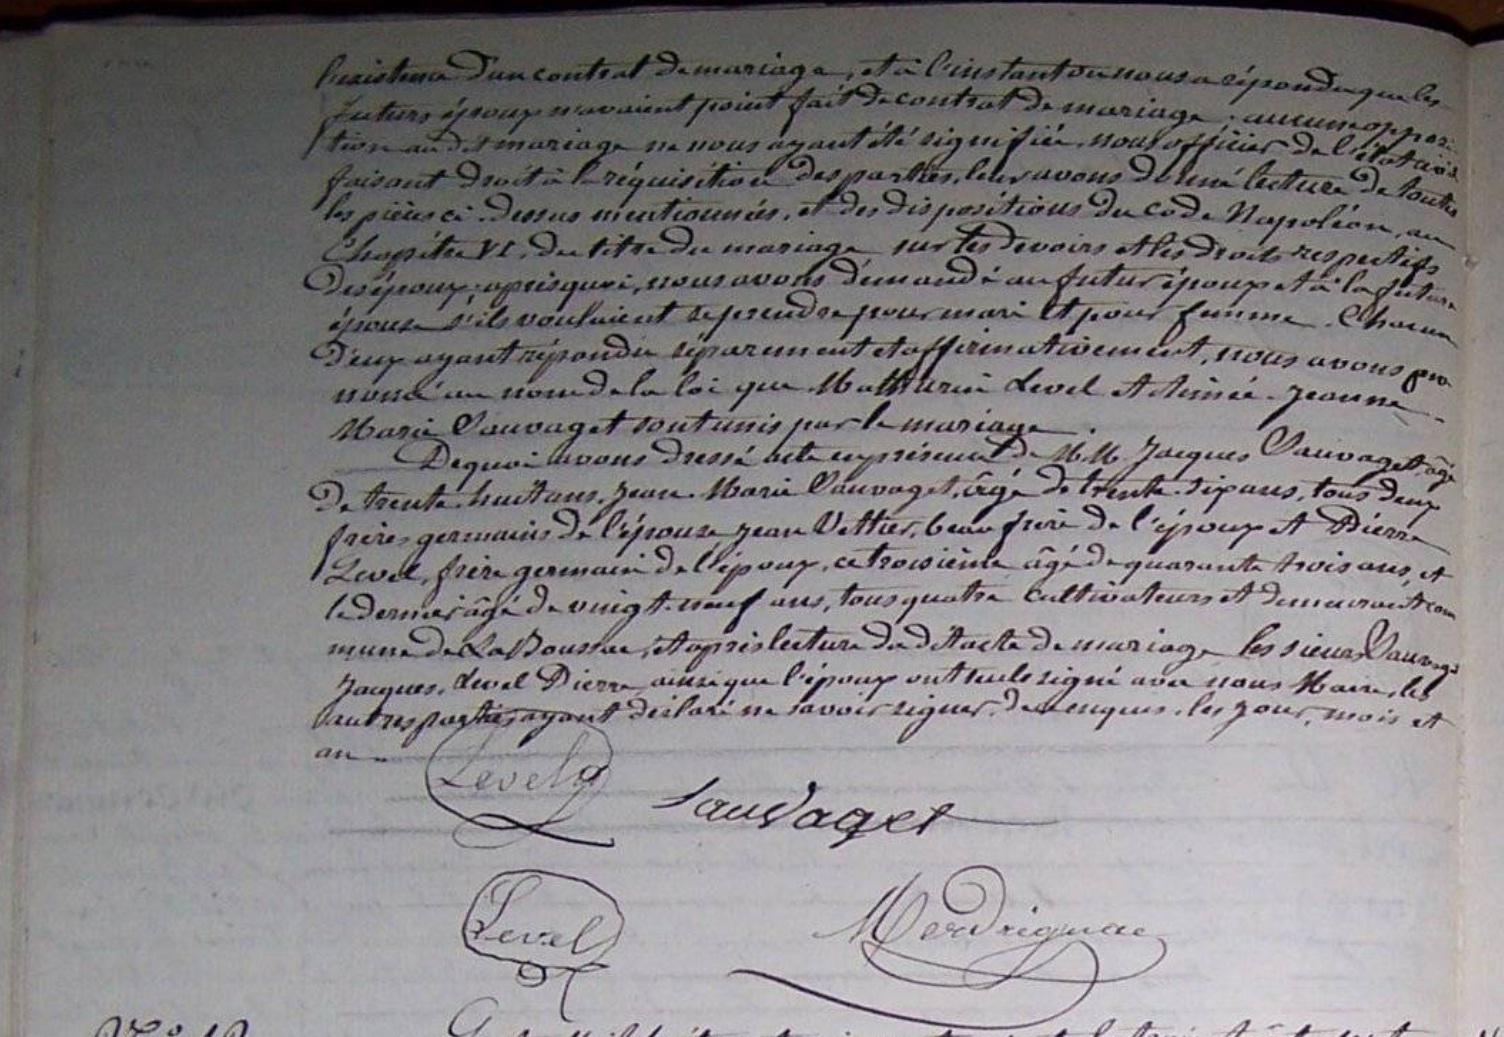 l'existence d'un contrat de mariage, et à l'instant on nous a répondu que les
futurs époux n'avaient point fait de contrat de mariage ; aucune opposi-
tion au dit mariage ne nous ayant été signifiée, nous officier de l'état civil
faisant droit à la réquisition des parties, leur avons donné lecture de toutes
les pièces ci-dessus mentionnées, et des dispositions du code Napoléon, au
Chapitre VI, du titre du mariage sur les devoirs et les droits respectifs
des époux ; après quoi, nous avons demandé au futur époux et à la future
épouse s'ils voulaient se prendre pour mari et pour femme. Chacun
d'eux ayant répondu séparement et affirmativement, nous avons pro-
noncé au nom de la loi que Mathurin Level et Aimée-Jeanne-
Marie Sauvaget sont unis par le mariage.
De quoi avons dressé acte en présence de M.M. Jacques Sauvaget, âgé
de trente-huit ans, Jean-Marie Sauvaget, âgé de trente-six ans, tous deux
frères germains de l'épouse, Jean Vettier, beau frère de l'époux et Pierre
Level, frère germain de l'époux, ce troisième âgé de quarante trois ans, et
le dernier âgé de vingt-neuf ans, tous quatre cultivateurs et demeurant com
mune de La Boussac, et après lecture du dit acte de mariage les sieurs Sauvaget
Jacques, Level Pierre, ainsi que l'époux ont seuls signé avec nous Maire, les
autres parties ayant déclaré ne savoir signer, de ce enquis, les jour, mois et
an.
Level
Sauvaget
Level
Merdrignac